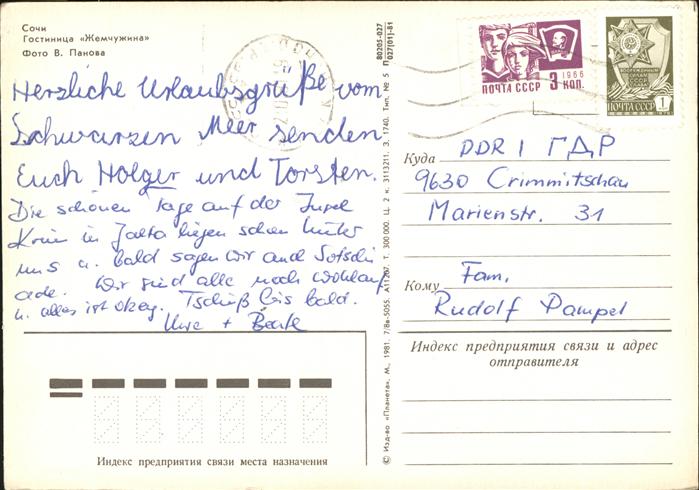 Сочи
Гостиница «Жемчужина»
Фото В. Панова
Herzliche Urlaubsgrüße vom
Schwarzen Meer senden
Euch Holger und Torsten.
Die schönen Tage auf der Insel
Krim in Jalta liegen schon hinter
uns u. bald sagen wir auch Sotschi
ade. Wir sind alle noch wohlauf
u. alles ist okay. Tschüß bis bald.
Uwe +
80205-027
027(01)-81
© Изд-во «Планета», М., 1981. 7/8в-5055. А11207. Т. 300 000. Ц. 2 к. 3113211. З. 1740. Тип. № 5
ПОЧТА СССР 3 КОП.
1966
ВООРУЖЕННЫЕ
СИЛЫ
СССР
ПОЧТА СССР 1
Куда DDR / ГДР
9630 Crimmitschau
Marienstr. 31
Кому Fam.
Rudolf Pampel
Индекс предприятия связи и адрес
отправителя
Индекс предприятия связи места назначения